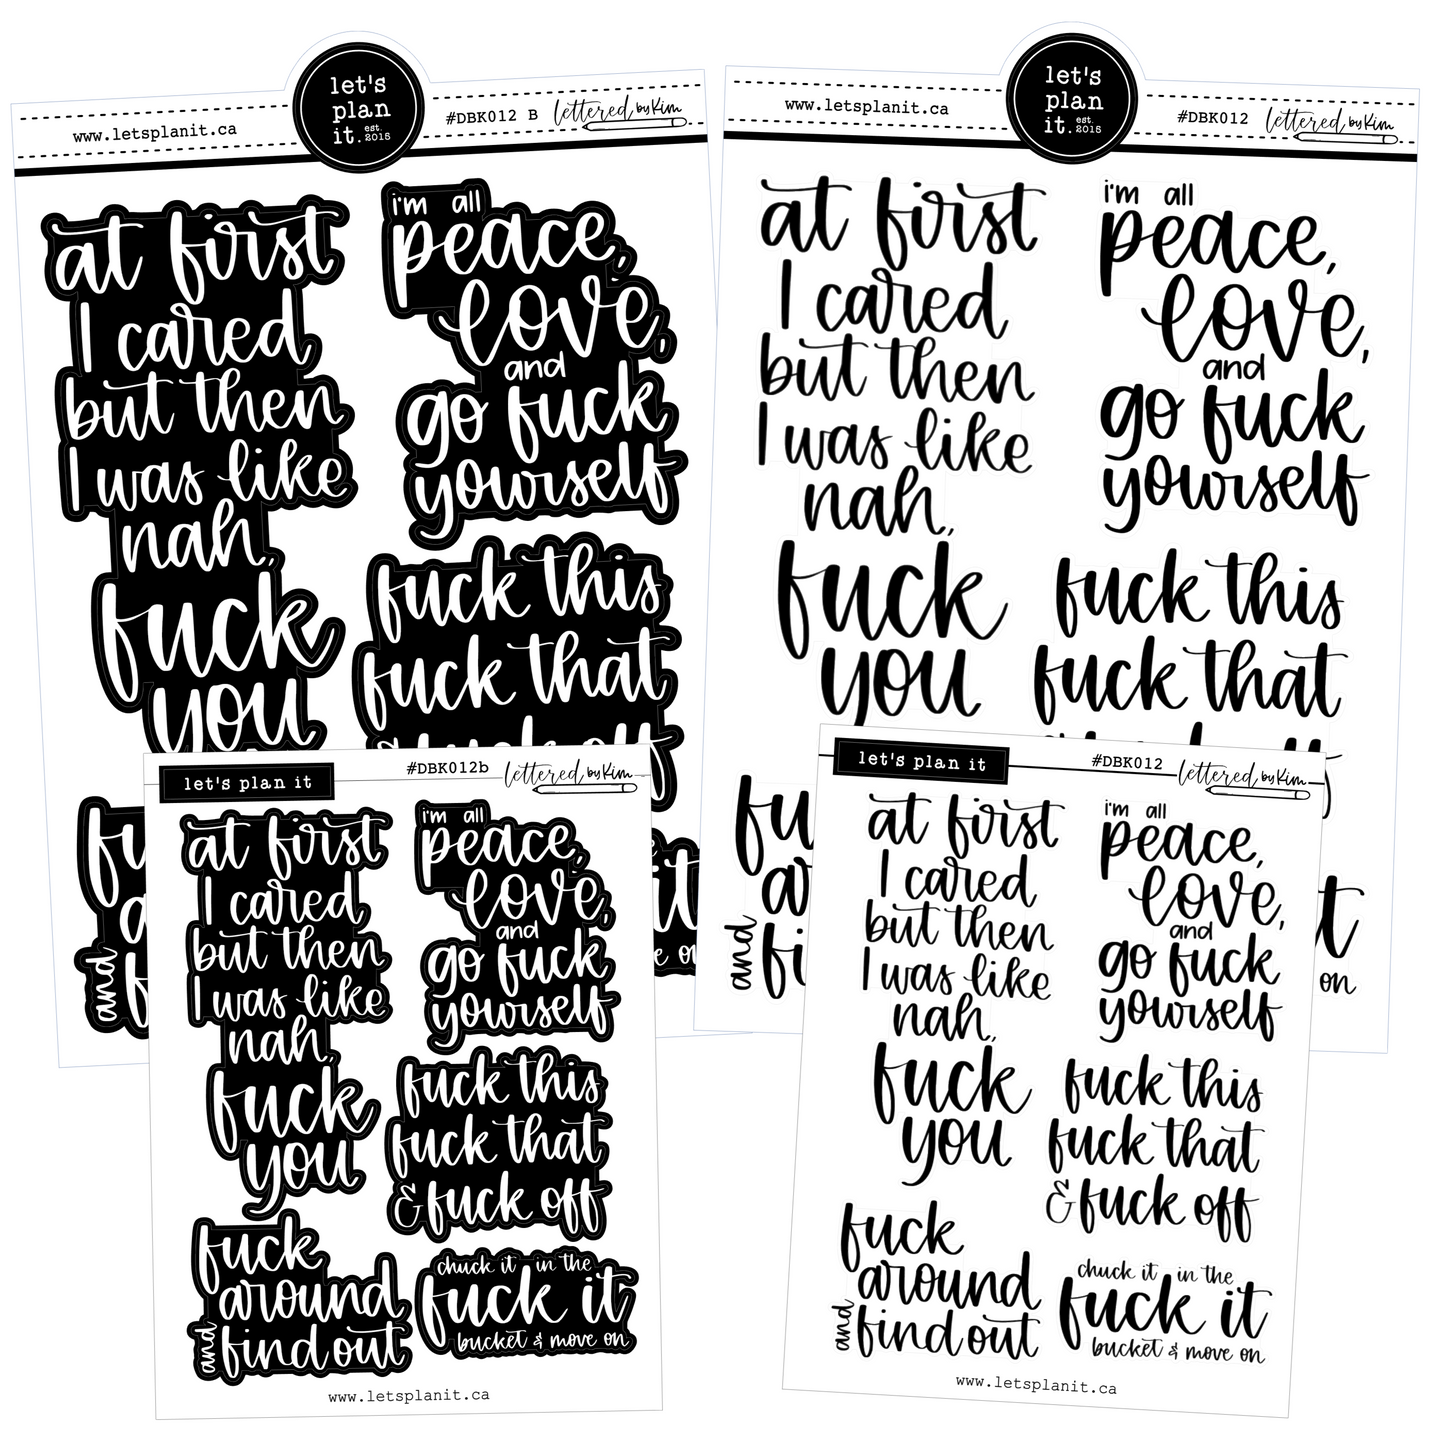 let's
plan
it.
est.
2015
www.letsplanit.ca
#DBK012 B
lettered by Kim
at first
I cared
but then
I was like
nah,
fuck
you
i'm all
peace,
love,
and
go fuck
yourself
fuck this
fuck that
& fuck off
and
let's
plan
it.
est.
2015
www.letsplanit.ca
#DBK012
lettered by Kim
at first
I cared
but then
I was like
nah,
fuck
you
i'm all
peace,
love,
and
go fuck
yourself
fuck this
fuck that
and
on
let's plan it
#DBK012b
lettered by Kim
at first
I cared
but then
I was like
nah,
fuck
you
i'm all
peace,
love,
and
go fuck
yourself
fuck this
fuck that
& fuck off
fuck
around
and find out
chuck it in the
fuck it
bucket & move on
www.letsplanit.ca
let's plan it
#DBK012
lettered by Kim
at first
I cared
but then
I was like
nah,
fuck
you
i'm all
peace,
love,
and
go fuck
yourself
fuck this
fuck that
& fuck off
fuck
around
and find out
chuck it in the
fuck it
bucket & move on
www.letsplanit.ca